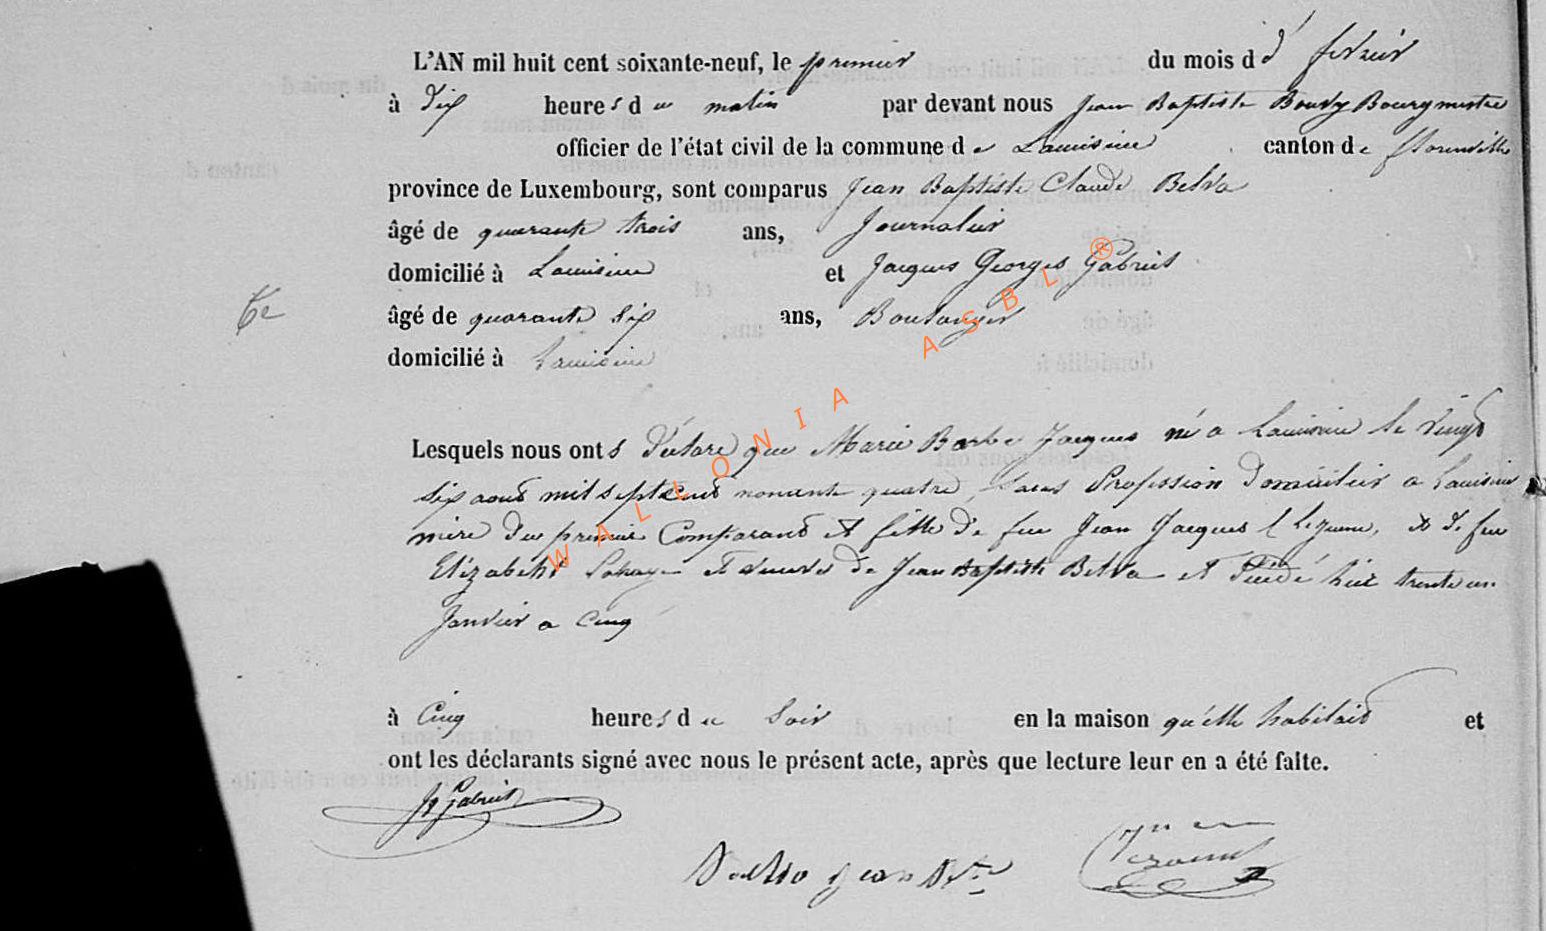 L'AN mil huit cent soixante-neuf, le premier du mois d d' fevrier
à dix heures du matin par devant nous Jean Baptiste Bourgmestre
officier de l'état civil de la commune de Lacuisine canton de florenville
province de Luxembourg, sont comparus Jean Baptiste Claude Belva
âgé de quarante trois ans, Journalier
domicilié à Lacuisine et Jacques Georges Gabriel
âgé de quarante six ans, Boulanger
domicilié à Lacuisine
Lesquels nous onts déclare que Marie Barbe Jacques né a Lacuisine le vingt
six aout mil sept cent nonante quatre, sans Profession Domicilier a Lacuisine
mère du premier Comparant et fille de feu Jean Jacques et de feu
Elizabeth et veuve de Jean Baptiste Belva et décédé hier trente un
Janvier a cinq
à Cinq heures du soir en la maison qu'elle habitait et
ont les déclarants signé avec nous le présent acte, après que lecture leur en a été faite.
Gabriel
Belva Jean Bte
WALLONIA ASBL ®